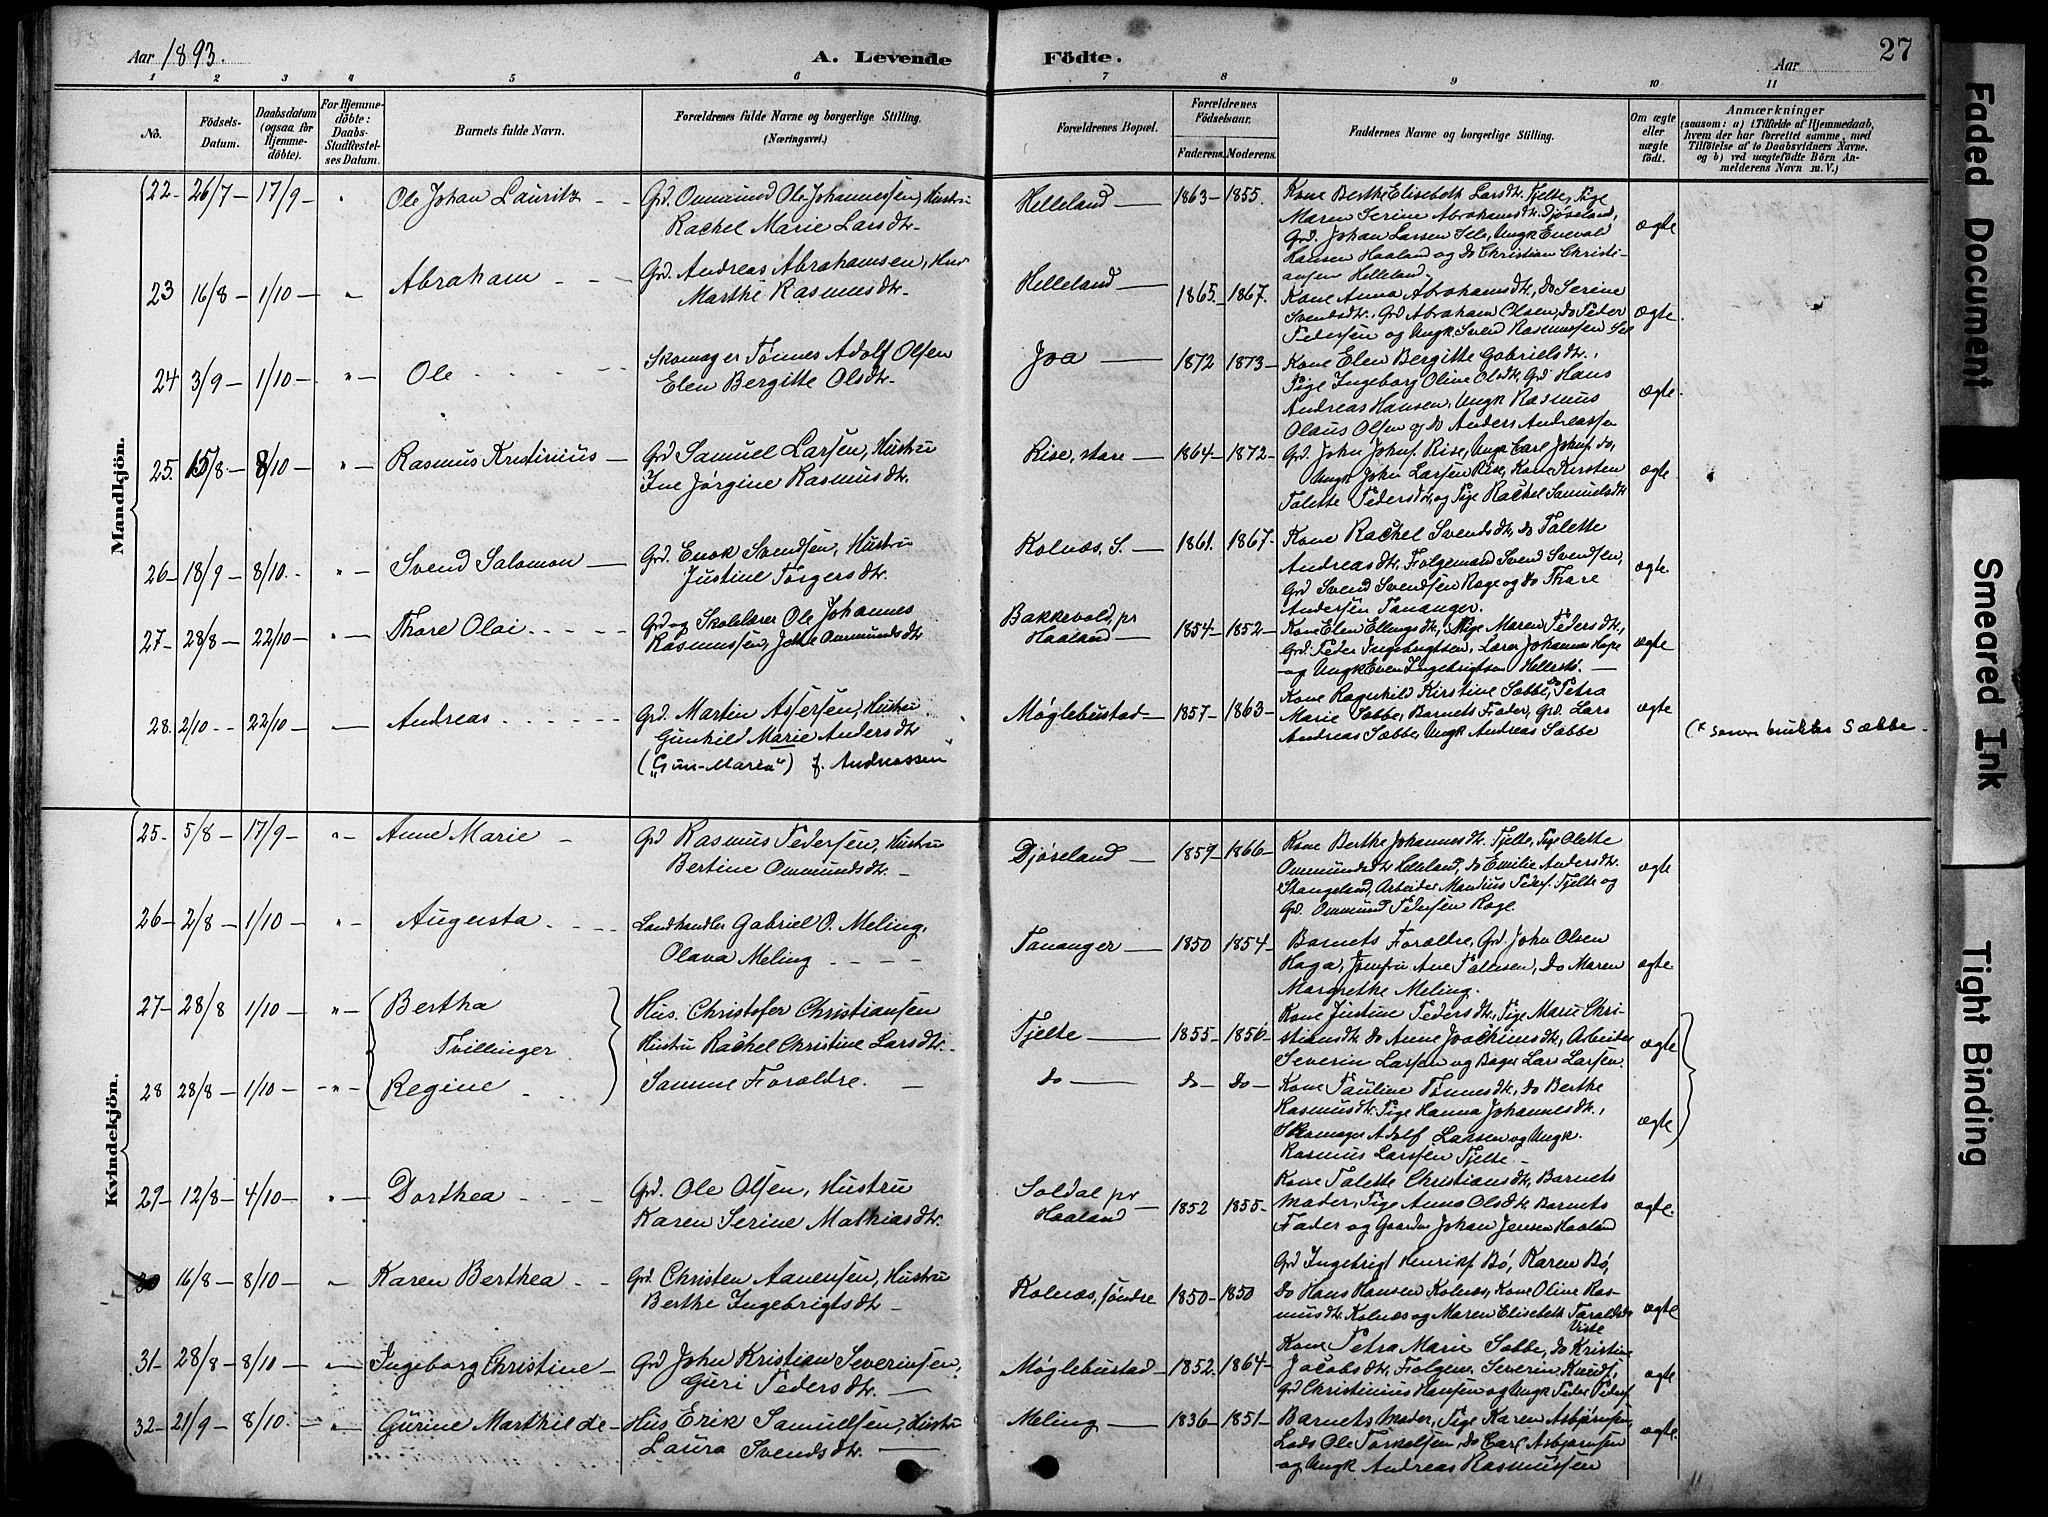 Aar 1893.
A. Levende Födte.
Aar
27
1 2 3 4 5 6 7 8 9 10 11
No.
Födsels-Datum.
Daabsdatum (ogsaa for Hjemme-döbte).
For Hjemme-döbte: Daabs-Stadfæstel-ses Datum.
Barnets fulde Navn.
Forældrenes fulde Navne og borgerlige Stilling. (Næringsvei.)
Forældrenes Bopæl.
Forældrenes Födselsaar.
Faderens. Moderens.
Faddernes Navne og borgerlige Stilling.
Om ægte eller uægte födt.
Anmærkninger
(saasom: a) i Tilfælde af Hjemmedaab, hvem der har forrettet samme, med Tilföielse af to Daabsvidners Navne. og b) ved uægtefödte Börn An-melderens Navn m. V.)
Mandkjön.
22- 26/7- 17/9- Ole Johan Lauritz - - Grd. Ommund Ole Johannessen, Hustru
Rachel Marie Larsdtr.
Helleland 1863- 1855.
Kone Berthe Elisabeth Larsdtr. Tjelte, Pige
Maren Serine Abrahamsdtr. Djøseland,
Grd. Johan Larsen Sele, Ungk Enevald
Hansen Haaland og do Christian Christi-
ansen Helleland.
ægte
23 16/8- 1/10- Abraham - - Grd. Andreas Abrahamsen, Hus
Marthe Rasmusdtr.
Helleland 1865. 1867.
Kone Anna Abrahamsdtr, do Serine
Svendsdtr., Grd Abraham Olsen, do Peder
Pedersen og Ungk Svend Rasmussen
ægte.
24 3/9- 1/10- Ole Skomager Tønnes Adolf Olsen
Elen Bergitte Olsdtr.
Joa 1872 1873-
Kone Elen Bergitte Gabrielsdtr.,
Pige Ingeborg Oline Olsdtr, Grd Hans
Andreas Hansen, Ungk Rasmus
Olaus Olsen og do Anders Andreassen
ægte.
25. 15/8- 8/10- Rasmus Kristinius - Grd Samuel Larsen, Hustru
Ine Jørgine Rasmusdtr.
Rise, store 1864- 1872-
Grd. John Johns. Rise, Ungk Carl Johns. do,
Ungk John Larsen Rise, Kone Kirsten
Talette Pedersdtr, og Pige Rachel Samuelsdtr
ægte
26- 18/9- 8/10. Svend Salomon Grd. Enok Svendsen, Hustru
Justine Torgersdtr.
Kolnæs, S. 1861. 1867-
Kone Rachel Svendsdtr, do Talette
Andreasdtr, Folgemand Svend Svendsen,
Grd Svend Svendsen Roge og do Thore
Andersen Tananger.
ægte
27- 28/8- 22/10- Thore Olai Grd og Skolelærer Ole Johannes
Rasmussen, Ommundsdtr
Bakkevold, pr
Haaland 1854- 1852-
Kone Elen Ellingsdtr, Pige Maren Pedersdtr,
Grd. Peder Ingebrigtsen, Lærer Johannes
og Ungk Even Ingebrigtsen Hellestø.
ægte
28. 2/10 22/10- Andreas Grd. Martin Assersen, Hustru
Gunhild Marie Andersdtr
("Gun-Maria") f. Andreassen
Møglebustad 1857- 1863-
Kone Ragnhild Kirstine Sæbbe, do Petra
Marie Sæbbe, Barnets Fader, Grd. Lars
Andreas Sæbbe, Ungk Andreas Sæbbe
ægte
bruker Sæbbe
Kvindekjön.
25- 5/8- 17/9- Anne Marie - Grd Rasmus Pedersen, Hustru
Bertine Ommundsdtr.
Djøseland 1859- 1866-
Kone Berthe Johannesdtr. Tjelte, Pige Olette
Ommundsdtr Helleland, do Emilie Andersdtr.
Stangeland, Arbeider Mandius Peders. Tjelte og
Grd. Ommund Pedersen Roge.
ægte
26- 2/8- 1/10- Augusta Landhandler Gabriel O. Meling,
Olava Meling
Tananger 1850 1854-
Barnets Forældre, Grd. John Olsen
Haga, Jomfru Ane Tollesen, do Maren
Margrethe Meling.
ægte
27- 28/8- 1/10- Bertha Hus. Christofer Christiansen
Tvillinger Hustru Rachel Christine Larsdtr.
Tjelte 1855- 1856-
Kone Justine Pedersdtr., Pige Marie Chri-
stiansdtr, do Anne Joachimsdtr, Arbeider
Severin Larsen og Bager Lars Larsen.
ægte
28 28/8- 1/10- Regine Samme Forældre.
do do- do-
Kone Pauline Tønnesdtr., do Berthe
Rasmusdtr. Pige Hanna Johannesdtr.,
Skomager Adolf Larsen og Ungk.
Rasmus Larssen Tjelte
ægte
29- 12/8- 4/10- Dorthea Grd. Ole Olsen, Hustru
Karen Serine Mathiasdtr.
Soldal pr
Haaland 1852 1855-
Kone Talette Christiansdtr, Barnets
Moder, Pige Anna Olsdtr Barnets
Fader og Johan Jensen Haaland
ægte.
30 16/8- 8/10- Karen Berthea Grd. Christen Aanensen, Hustru
Berthe Ingebrigtsdtr
Kolnæs, søndre 1850- 1850
Grd Ingebrigt Henriks. Bø, Karen Bø,
do Hans Hansen Kolnæs, Kone Oline Ras-
musdtr. Kolnæs og Maren Elisabeth Taraldsdtr
Viste
ægte
31- 28/8- 8/10- Ingeborg Christine Grd John Kristian Severinsen,
Guri Pedersdtr.
Møglebustad 1852. 1864-
Kone Petra Marie Sæbbe, do Kristine
Jacobsdtr, Folgem. Severin Knuds.,
Grd Christinius Hansen og Ungk Peder Peders.
ægte
32- 21/9- 8/10. Gurine Marthilde Hus Erik Samuelsen, Hustru
Laura Svendsdtr.
Meling 1836- 1851-
Barnets Moder, Pige Karen Asbjørnsen,
Lods Ole Torkelsen, do Carl Asbjørnsen
og Ungk Andreas Rasmussen
ægte.
Faded Document
Smeared Ink
Tight Binding